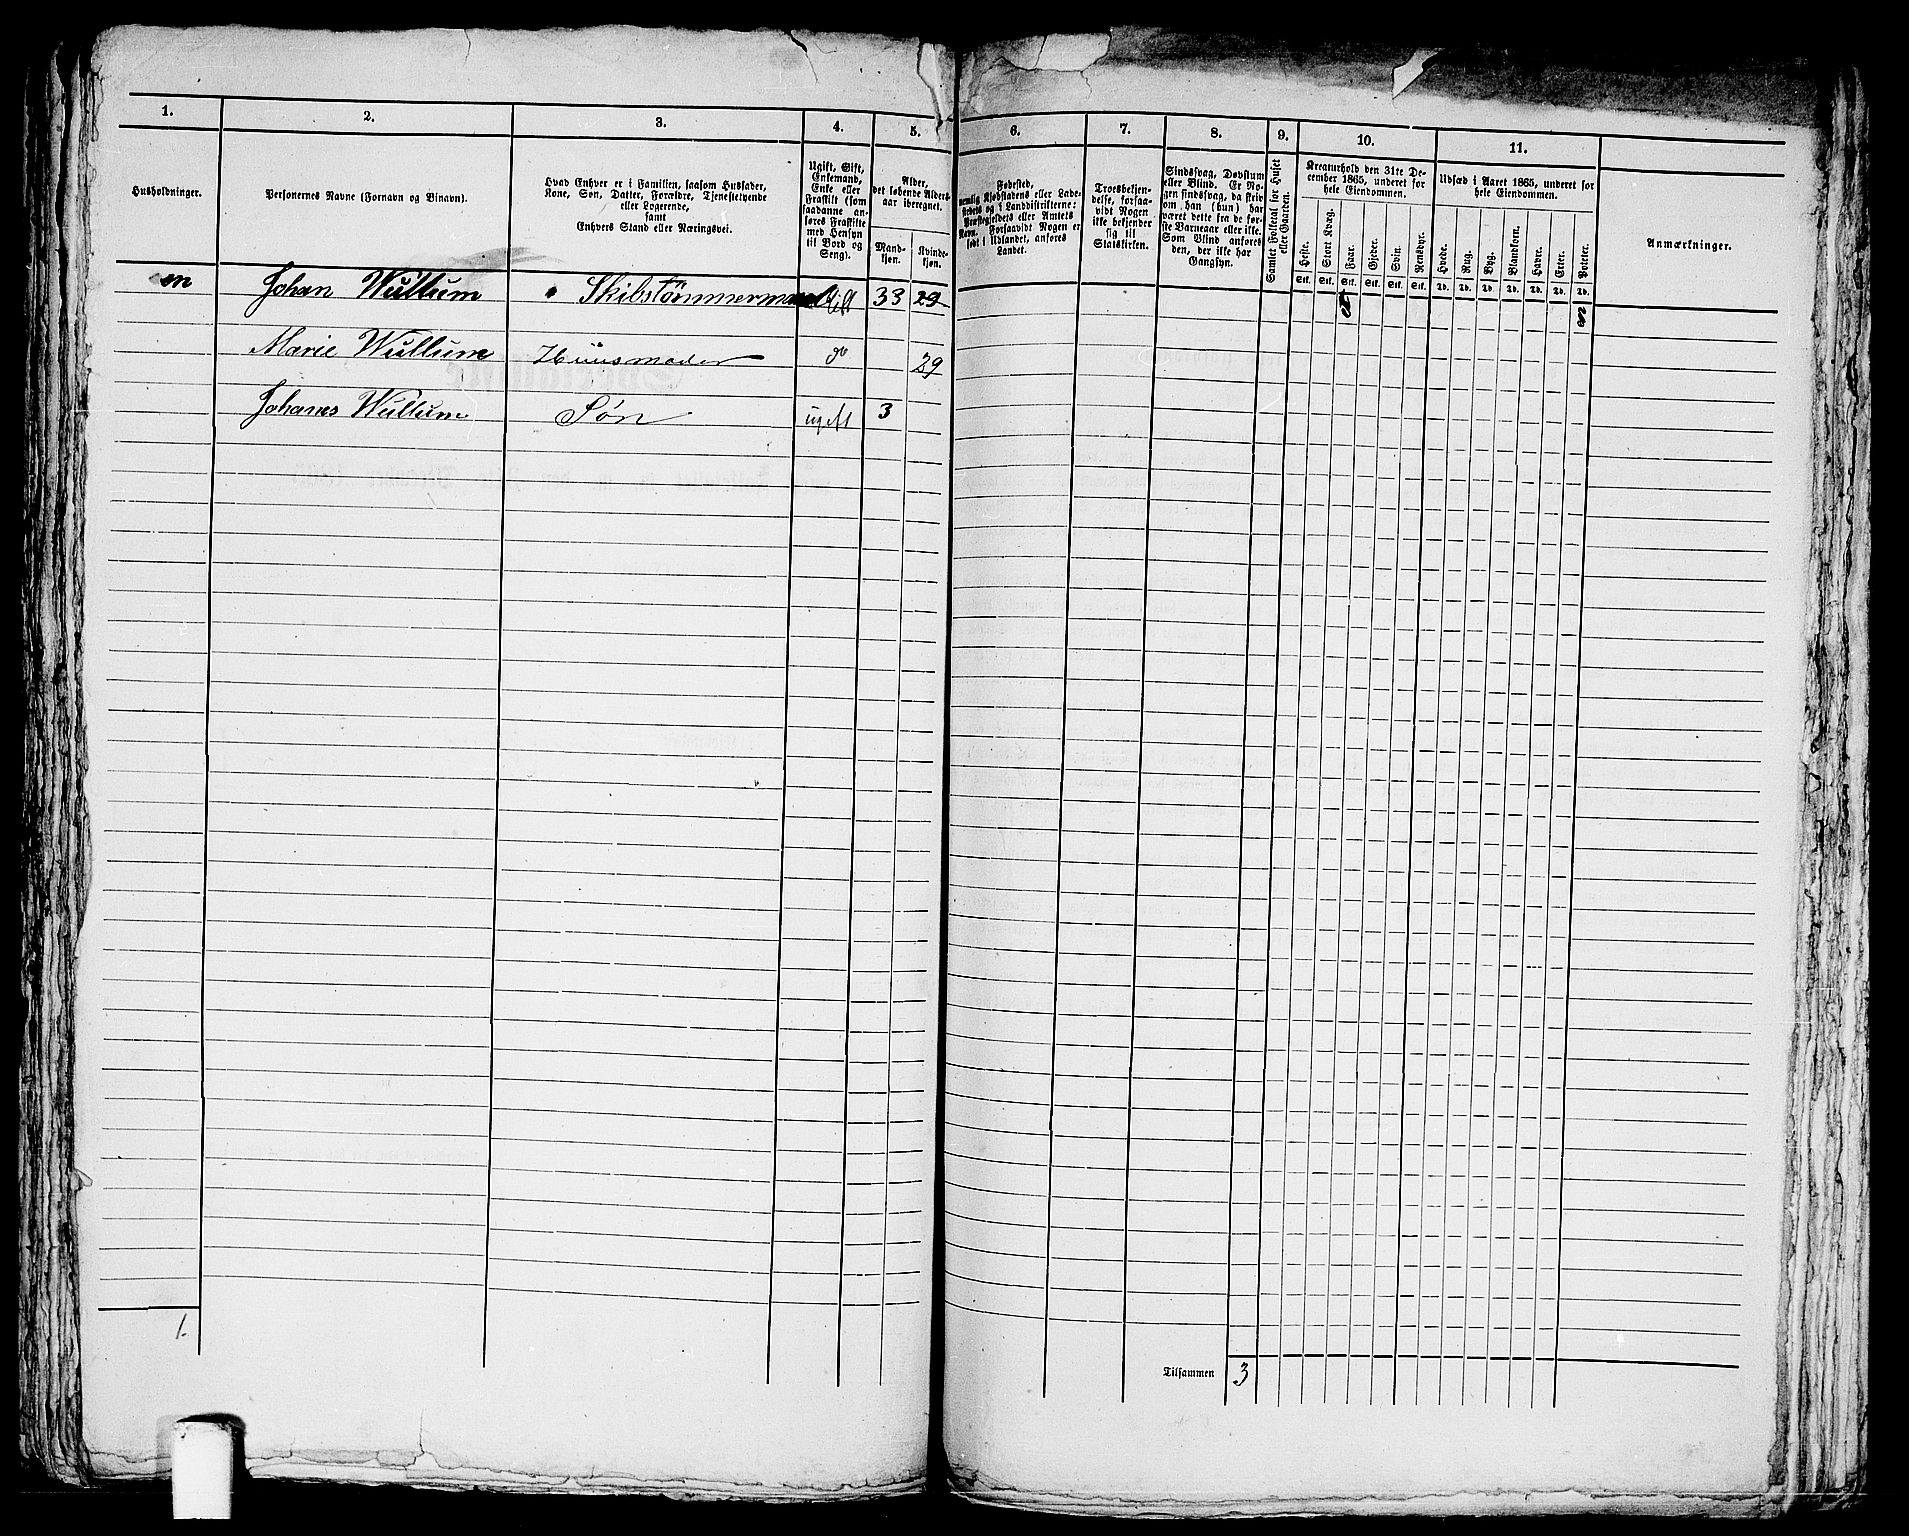 1.
2.
3.
4.
5.
6.
7.
8.
9.
10.
11.
Husholdninger.
Personernes Navne (Fornavn og Binavn).
Hvad Enhver er i Familien, saasom Husfader,
Kone, Søn, Datter, Forældre, Tjenestetyende
eller Logerende,
samt
Enhvers Stand eller Næringsvei.
Ugift, Gift,
Enkemand,
Enke eller
Fraskilt (som
saadanne an-
føres Fraskilte
med Hensyn
til Bord og
Seng).
Alder,
det løbende Alders-
aar iberegnet.
Mand-
kjøn.
Kvinde-
kjøn.
Fødested,
nemlig Kjøbstadens eller Lade-
stedets og i Landdistrikterne:
Præstegjeldets eller Amtets
Navn. Forsaavidt Nogen er
født i Udlandet, anføres
Landet.
Troesbekjen-
delse, forsaa-
vidt Nogen
ikke bekjender
sig til
Statskirken.
Sindssvag, Døvstum
eller Blind. Er No-
gen sindssvag, da skriv
om han (hun) har
været dette fra de før-
ste Barneaar eller ikke.
Som Blind anføres
den, der ikke har
Gangsyn.
Samlet Folketal for Huset
eller Gaarden.
Kreaturhold den 31te De-
cember 1865, underet for
hele Eiendommen.
Heste.
Stort Kvæg.
Faar.
Gjeder.
Svin.
Rensdyr.
Stk. Stk. Stk. Stk. Stk. Stk.
Udsæd i Aaret 1865, underet for
hele Eiendommen.
Hvede.
Rug.
Byg.
Blandkorn.
Havre.
Erter.
Poteter.
Td. Td. Td. Td. Td. Td. Td.
Anmærkninger.
en Johan Wullum Skibstømmermand Gift 33 29
Marie Wullum Huusmoder do 29
Johanes Wullum Søn ugift 3
1.
Tilsammen 3